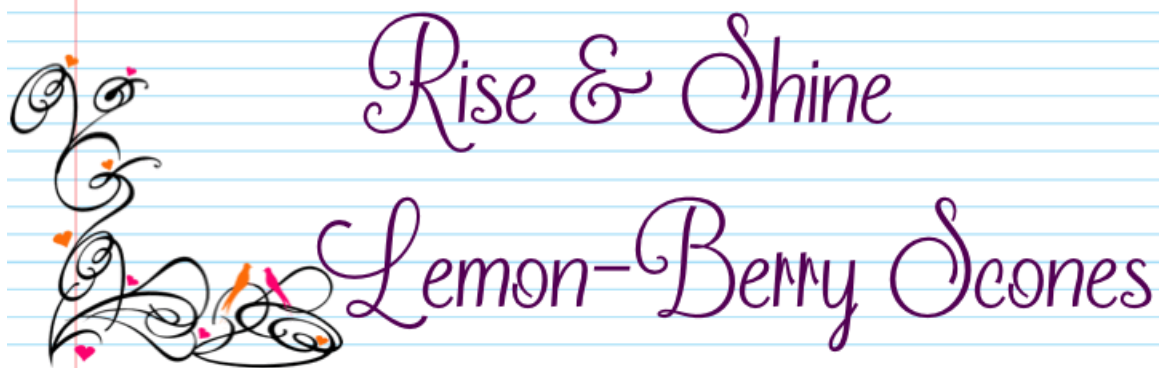 Rise & Shine
Lemon-Berry Scones